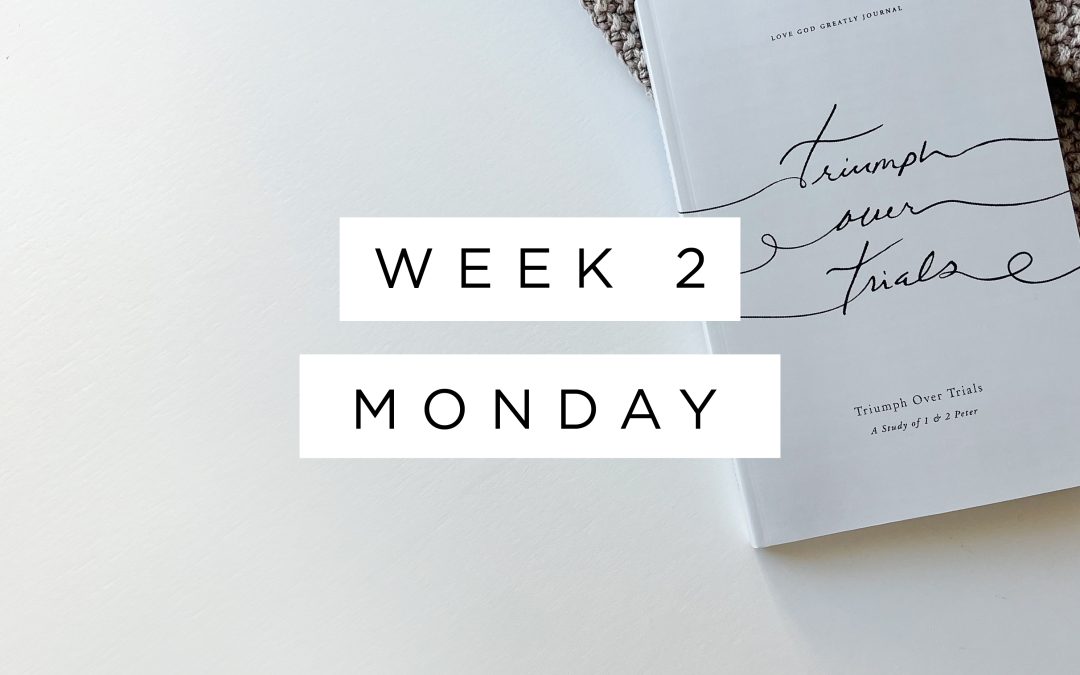 LOVE GOD GREATLY JOURNAL
Triumph
over
Trials
WEEK 2
MONDAY
Triumph Over Trials
A Study of 1 & 2 Peter